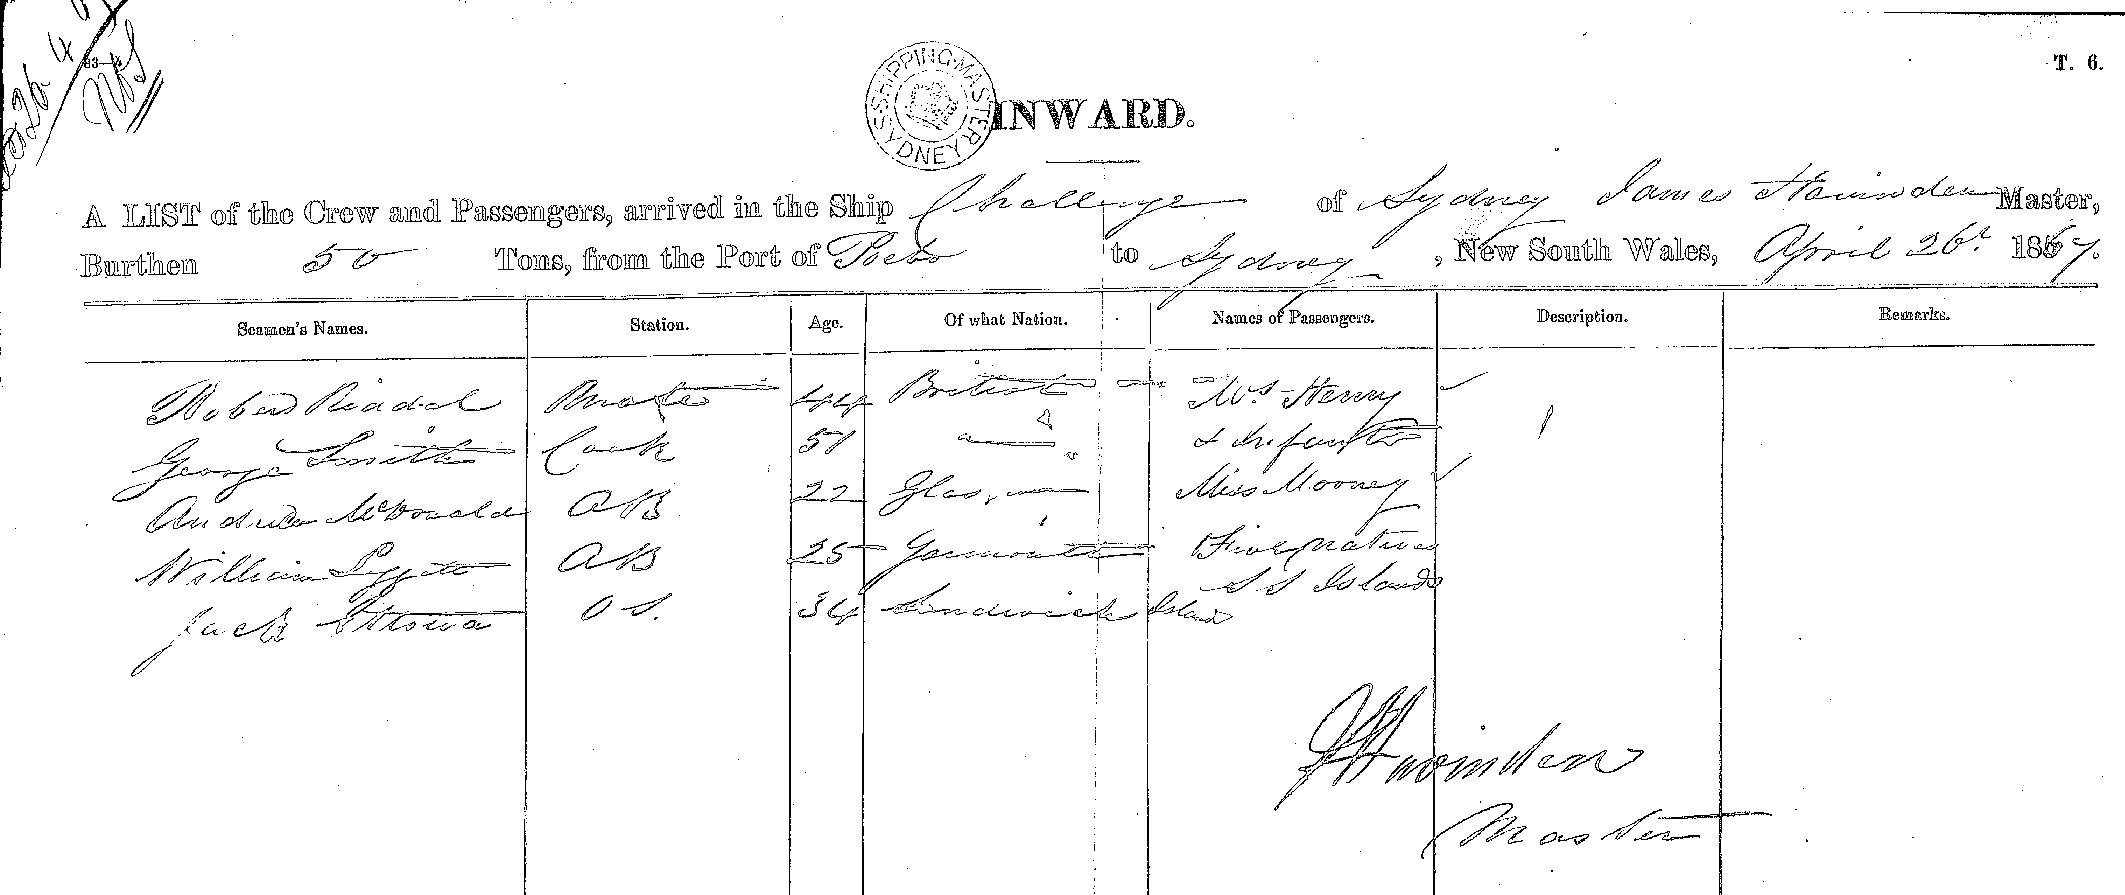 T. 6.
SHIPPING MASTER SYDNEY
INWARD.
A LIST of the Crew and Passengers, arrived in the Ship Challenge of Sydney James Master,
Burthen 50 Tons, from the Port of to Sydney, New South Wales, April 26th 1867.
Seamen's Names. Station. Age. Of what Nation. Names of Passengers. Description. Remarks.
Robert Riddal Mate 44 British Mrs Henry
George Smith Cook 51 & Infant
Andrew McDonald AB 22 Glasgow Miss Mooney
William AB 25 Yarmouth Five natives
S S Islands
Jack OS. 34 Sandwich Island
Master